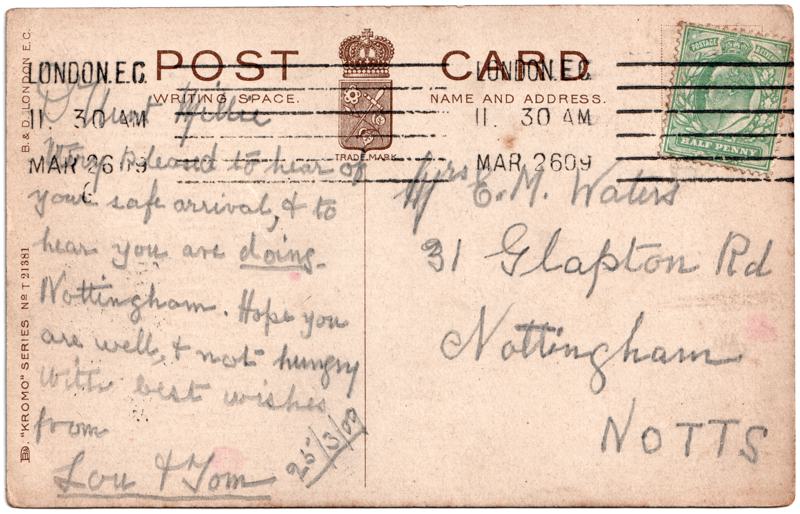 POST CARD
WRITING SPACE.
NAME AND ADDRESS.
TRADE MARK
LONDON. E.C.
11. 30 AM
MAR 26 09
LONDON. E.C.
11. 30 AM
MAR 26 09
POSTAGE
HALF PENNY
D Aunt Millie
Very pleased to hear of
your safe arrival, & to
hear you are doing
Nottingham. Hope you
are well, & not hungry
with best wishes
from
Lou & Tom
25/3/09
Mrs E. M. Waters
31 Glapton Rd
Nottingham
NOTTS
B. & D. LONDON E.C.
"KROMO" SERIES No T 21381